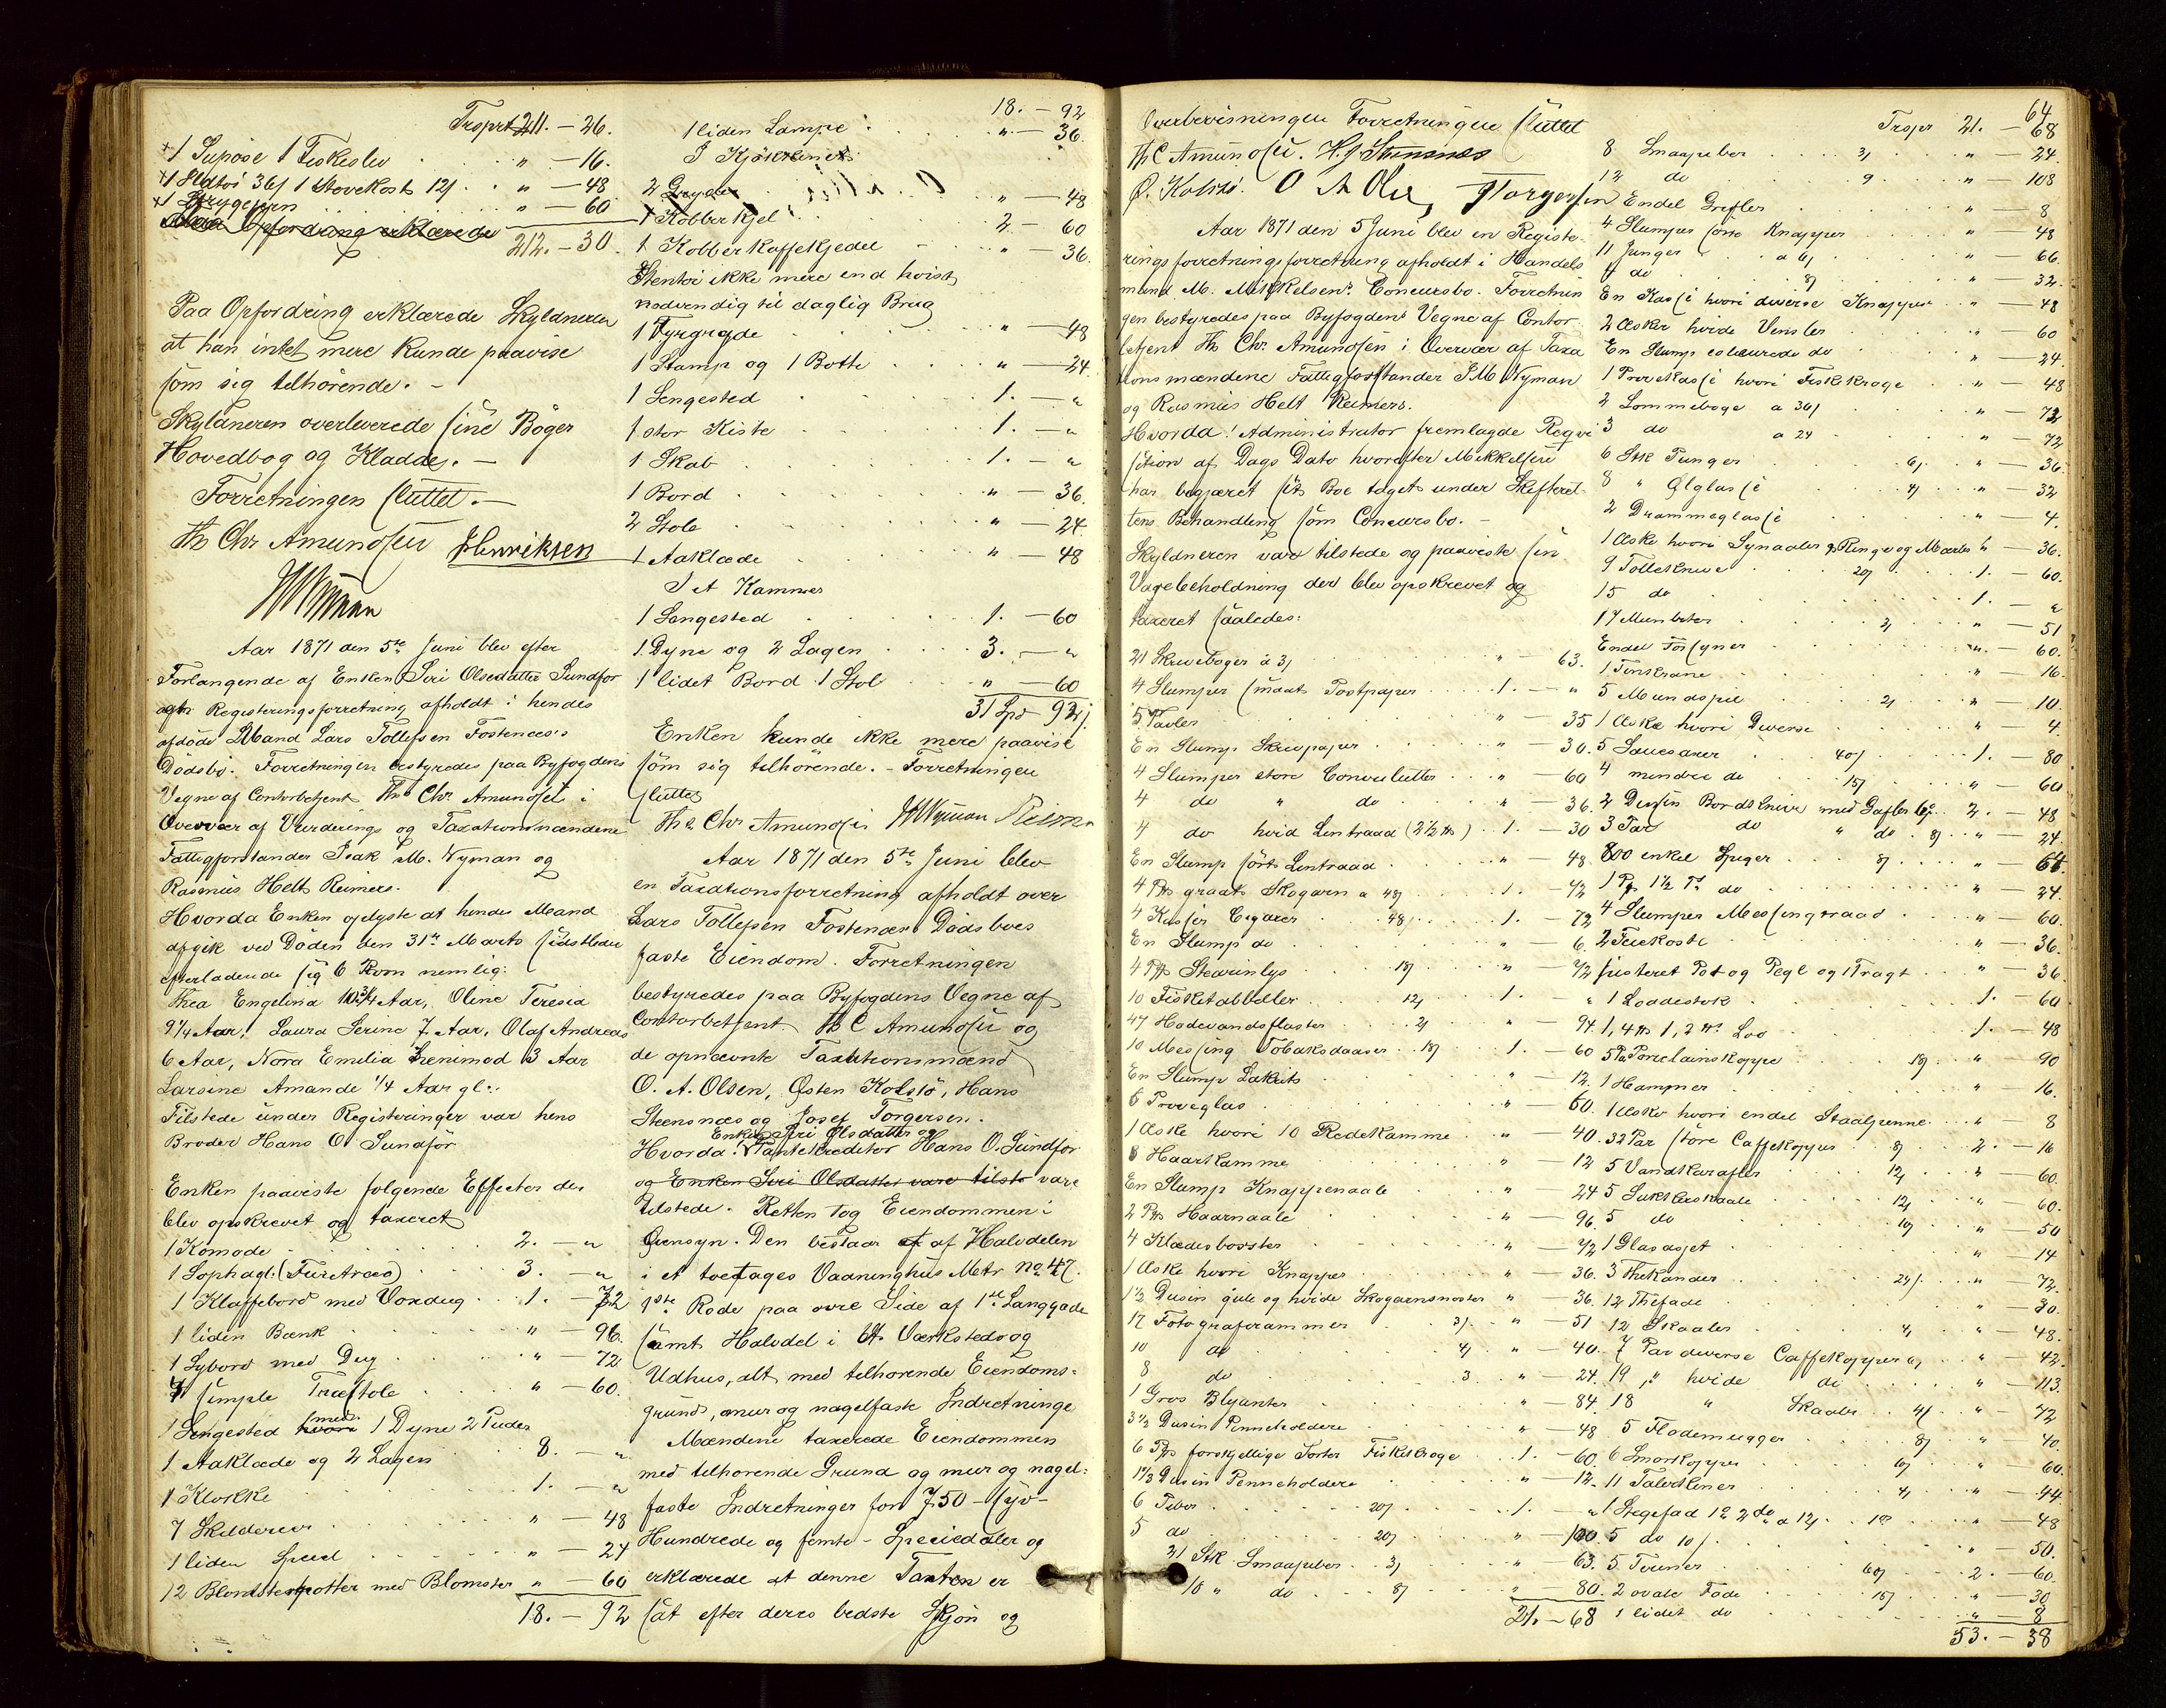 Trsprt 211. - 26.
1 Supöse 1 Fiskeslev " - 16.
1 Ildtöi 36 1 Stovekost 12 " - 48
1 Strygejern " - 60
Paa Opfordring erklærede
212. - 30.
Paa Opfordring erklærede Skyldneren
at han intet mere kunde paavise
som sig tilhörende. -
Skyldneren overleverede sine Böger
Hovedbog og Kladde. -
Forretningen sluttet. -
Th Chr Amundsen JHenriksen
JMNyman
Aar 1871 den 5te Juni blev efter
Forlangende af Enken Siri Olsdatter Sundför
Registeringsforretning afholdt i hendes
afdöde Mand Lars Tollefsen Fostenæs's
Dödsbo. Forretningen bestyredes paa Byfogdens
Vegne af Contorbetjent Ths Chr. Amundsen i
Overvær af Vurderings og Taxationsmændene
Fattigforstander Isak M. Nyman og
Rasmus Helt Reimers.
Hvorda Enken oplyste at hendes Mand
afgik ved Döden den 31te Marts sidstleden
efterladende sig 6 Börn nemlig:
Thea Engelina 10 3/4 Aar, Oline Teresia
9 1/4 Aar, Laura Serine 7 Aar, Olaf Andreas
6 Aar, Nora Emilia 3 Aar
Larsine Amande 1/4 Aar gl:
Tilstede under Registeringen var hens
Broder Hans O. Sundför
Enken paaviste fölgende Effecter der
blev opskrevet og taxeret
1 Komode 2. - "
1 Sophagl. (Furetræe) 3. - "
1 Klaffebord med Voxdug 1. - 72
1 liden Bænk " - 96.
1 Sybord med Dug " - 72
4 simple Træstole " - 60.
1 Sengested hvori med 1 Dyne 2 Puder
1 Aaklæde og 2 Lagen 8. - "
1 Klokke 1. - "
7 Skilderier " - 48
1 liden Speil " - 24
12 Blomsterpotter med Blomster " - 60
18. - 92
18. - 92
1 liden Lampe " - 36
I Kjökkenet
2 Gryder " - 48
1 Kobberkjel 2 - 60
1 Kobberkaffekjedel " - 36.
Stentöi ikke mere end höist
nödvendig til daglig Brug
1 Fyrgryde " - 48
1 Stamp og 1 Bötte " - 24
1 Sengested 1. - "
1 stor Kiste 1. - "
1 Skab 1. - "
1 Bord " - 36.
2 Stole " - 24
1 Aaklæde " - 48
I et Kammer
1 Sengested 1. - 60
1 Dyne og 2 Lagen 3. - "
1 lidet Bord 1 Stol " - 60
31 Spd 92
Enken kunde ikke mere paavise
som sig tilhörende. - Forretningen
sluttet
Ths Chr Amundsen JMNyman Reimers
Aar 1871 den 5te Juni blev
en Taxationsforretning afholdt over
Lars Tollefsen Fostenæs Dödsboes
faste Eiendom. Forretningen
bestyredes paa Byfogdens Vegne af
Contorbetjent Th C Amundsen og
de opnævnte Taxationsmænd
O. A. Olsen, Östen Kolstö, Hans
Steensnæs og Josef Torgersen.
Enken Siri Olsdatter og
Hvorda: Panteкreditor Hans O. Sundför
og Enken Siri Olsdatter vare tilste vare
tilstede. Retten tog Eiendommen i
Öiensyn. Den bestaar af Halvdelen
i et toetages Vaaninghus Matr No 47.
1ste Rode paa övre Side af 1ste Langgade
samt Halvdel i et Værksteds og
Udhus, alt med tilhörende Eiendoms=
grund, mur og nagelfaste Indretninge
Mændene taxerede Eiendommen
med tilhörende Grund og mur og nagel=
faste Indretninger for 750 - syv -
Hundrede og femti - Speciedaler og
erklærede at denne Taxten er
sat efter deres bedste Skjön og
64
Overbevisningen Forretningen sluttet
Th C Amundsen. H. J. Steensnæs
Ö. Kolstö. O A Olsen, JTorgersen
Aar 1871 den 5 Juni blev en Registe-
ringsforretningsforretning afholdt i Handels
mand M. Mikkelsens Concursbo. Forretnin
gen bestyredes paa Byfogdens Vegne af Contor
betjent Th Chr. Amundsen i Overvær af Taxa
tionsmændene Fattigforstander I M Nyman
og Rasmus Helt Reimers.
Hvorda: Administrator fremlagde Reqvi
sition af Dags Dato hvorefter Mikkelsen
har begjæret sit Boe taget under Skifteret-
tens Behandling som Concursbo. -
Skyldneren var tilstede og paaviste sin
Varebeholdning der blev opskrevet og
taxeret saaledes:
21 Skriveböger à 3 " - 63.
4 Slumper smaat Postpapir 1. - "
5 Tavler " - 35
En Slump Skrivpapir " - 30.
4 Slumper store Convolutter " - 60
4 do " do " - 36.
4 do hvid Lintraad (2 1/2 ) 1. - 30
En Slump sort Lintraad " - 48.
4 graat Skogarn a 48 1. - 72
4 Kasser Cigarer 48 1. - 72
En Slump do " - 6.
4 Stearinlys 18 " - 72
10 Fisketabeller 12 1. - "
47 Hodevandsflasker 2 " - 94.
10 Messing Tobaksdaaser 18 1. - 60
En Slump Lakrits " - 12.
6 Pröveglas " - 60.
1 Æske hvori 10 Redekamme " - 40.
8 Haarkamme " - 12
En Slump Knappenaale " - 24
2 Haarnaale " - 96.
4 Klædesbörster " - 72
1 Æske hvori Knapper " - 36.
1 1/2 Dusin gule og hvide Skogarnsnöster " - 36.
17 Fotografirammer 3 " - 51
10 do 4 " - 40.
8 do 3 " - 24.
1 Gros Blyanter " - 84.
3 1/2 Dusin Penneholdere " - 48
6 forskjellige Sorter Fiskekroge 1. - 60.
1 1/3 Dusin Penneholdere " - 12.
6 Piber 20 1. - "
5 do 20 " - 100.
21 Stk Smaapiber 3 " - 63.
10 " do 8 " - 80.
21. - 68
Trspr 21. - 68
8 Smaapiber 3 " - 24.
12 do 9 " - 108
Endel Grifler " - 8
4 Slumper sorte Knapper " - 48
11 Junger a 6 " - 66.
4 do 8 " - 32.
En Kasse hvori diverse Knapper " - 48
2 Æsker hvide " - 60
En Slump do " - 24.
1 Pröve Kasse hvori Fiskekroge " - 48
2 Lommeböge a 36 " - 72
3 do a 24 " - 72
6 Stk Punger 6 " - 36.
8 " Ölglasse 4 " - 32
2 Drammeglasse " - 4.
1 Æske hvori Synaaler Ringe og " - 36.
9 Tolleknive 20 1. - 60.
15 do 1. - "
17 3 " - 51
Endel " - 60.
1 Tinkrane " - 16.
5 Mundspil 2 " - 10.
1 Æske hvori Diverse " - 4.
5 Sauesaxer 40 1. - 80
4 mindre do 15 " - 60
2 Dusin Bordknive med Gafler 2. - 48
3 Par do " do 8 " - 24.
800 enkel Spiger 8 " - 64.
do " - 24
4 Slumper Messingtraad " - 60.
2 Feiekoste " - 36.
justeret Pot og Pegl og 1 Tragt " - 36
1 Loddestok 1. - 60
1, 4 1, 2 Lod 1. - 48
5 Porclainskoppe 18 " - 90
1 Hammer " - 16.
1 Æske hvori endel Staalpenne " - 8
32 Par store Caffekopper 8 2. - 16
5 Vandkarafler 12 " - 60.
5 Sukkerskaale 12 " - 60.
5 do 10 " - 50
1 Glasasjet " - 14
3 Thekander 24 " - 72.
12 Thefade " - 30.
12 Skaaler 4 " - 48.
7 Par diverse Caffekopper 6 " - 42.
19 " hvide do " - 113.
18 " Skaaler 4 " - 72
5 Flödemugger 8 " - 40.
6 Smörkopper 6 " - 60.
11 Talerkener 4 " - 44
1 Stegefad 12 " - 48
5 do 10 " - 50.
5 Teriner 60 2. - 60.
2 ovale Fade 15 " - 30
1 lidet do " - 8
53. - 38